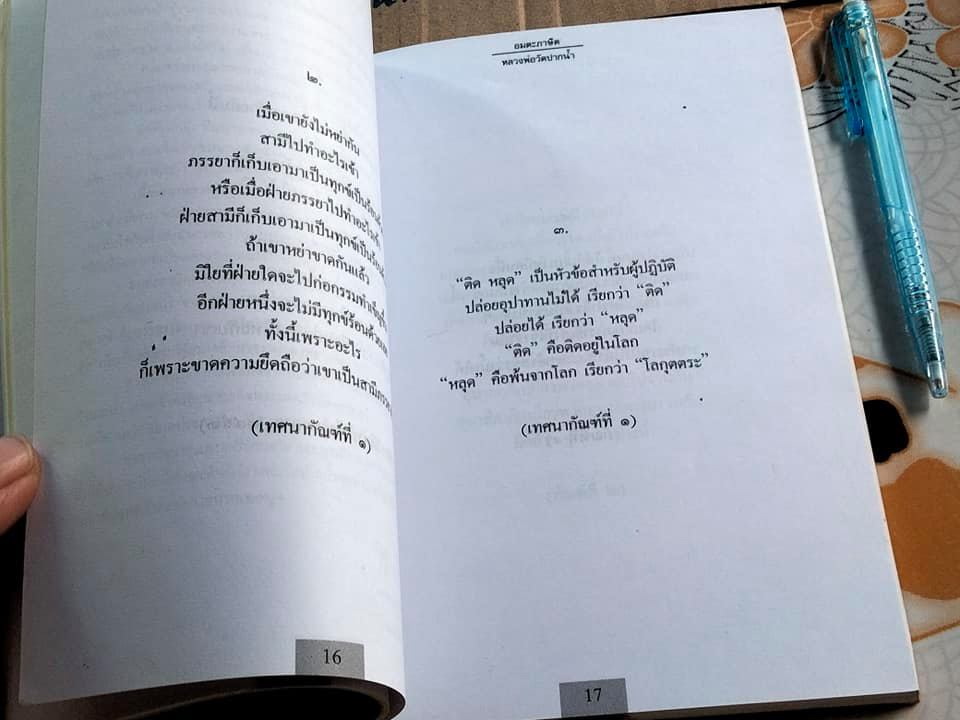 ๒.
เมื่อเขายังไม่หย่ากัน
สามีไปทำอะไรเข้า
ภรรยาก็เก็บเอามาเป็นทุกข์เป็นร้อน
หรือเมื่อฝ่ายภรรยาไปทำอะไรเข้า
ฝ่ายสามีก็เก็บเอามาเป็นทุกข์เป็นร้อน
ถ้าเขาหย่าขาดกันแล้ว
มิใยที่ฝ่ายใดจะไปก่อกรรมทำเข็ญ
อีกฝ่ายหนึ่งจะไม่มีทุกข์ร้อนด้วยเลย
ทั้งนี้เพราะอะไร
ก็เพราะขาดความยึดถือว่าเขาเป็นสามี
(เทศนากัณฑ์ที่ ๑)
16
อมตะภาษิต
หลวงพ่อวัดปากน้ำ
๓.
“ติด หลุด” เป็นหัวข้อสำหรับผู้ปฏิบัติ
ปล่อยอุปาทานไม่ได้ เรียกว่า “ติด”
ปล่อยได้ เรียกว่า “หลุด”
“ติด” คือติดอยู่ในโลก
“หลุด” คือพ้นจากโลก เรียกว่า “โลกุตตระ”
(เทศนากัณฑ์ที่ ๑)
17